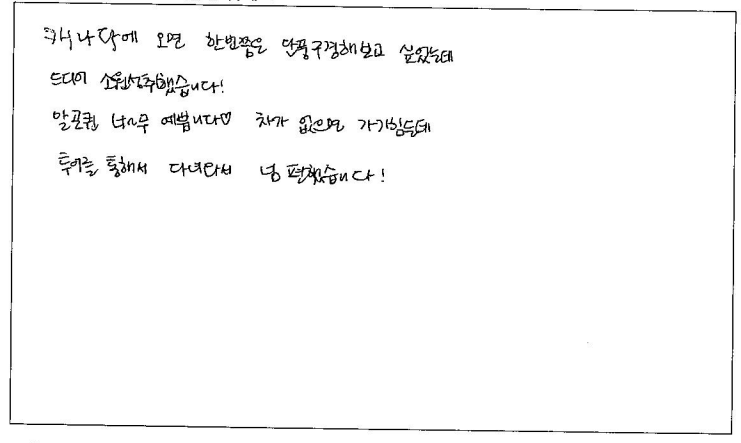 캐나다에 오면 한번쯤은 단풍구경해보고 싶었는데
드디어 소원성취했습니다!
알곤퀸 너~무 예쁩니다♡ 차가 없으면 가기힘든데
투어를 통해서 다녀와서 넘 편했습니다!